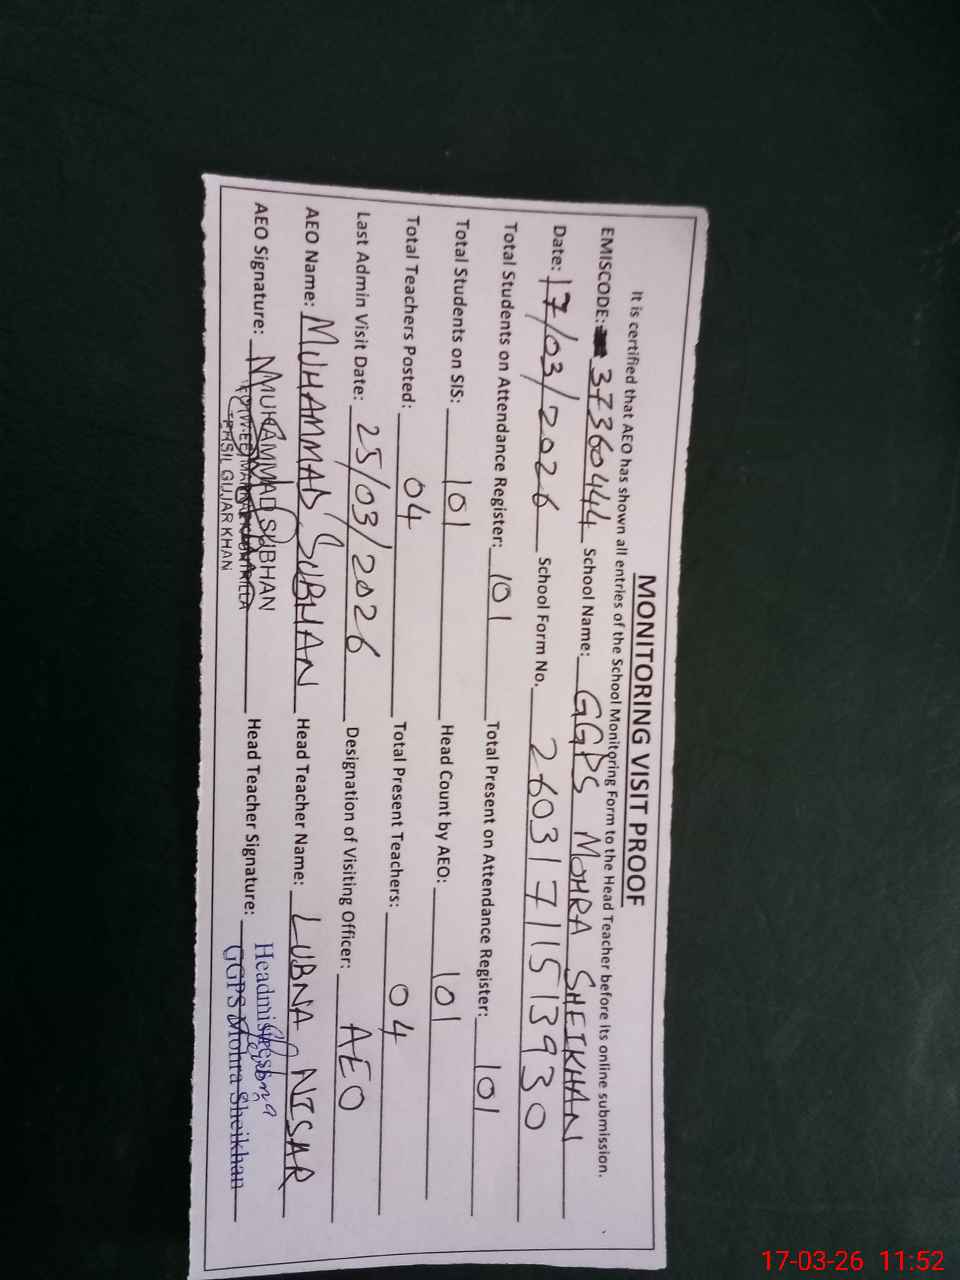 MONITORING VISIT PROOF
It is certified that AEO has shown all entries of the School Monitoring Form to the Head Teacher before its online submission.
EMISCODE: 37360444 School Name: GGPS MOHRA SHEIKHAN
Date: 17/03/2026 School Form No. 26031711513930
Total Students on Attendance Register: 101 Total Present on Attendance Register: 101
Total Students on SIS: 101 Head Count by AEO: 101
Total Teachers Posted: 04 Total Present Teachers: 04
Last Admin Visit Date: 25/03/2026 Designation of Visiting Officer: AEO
AEO Name: MUHAMMAD SUBHAN Head Teacher Name: LUBNA NISAR
AEO Signature: MUHAMMAD SUBHAN Head Teacher Signature: Headmistress
TEHSIL GUJAR KHAN GGPS Mohra Sheikhan
17-03-26 11:52